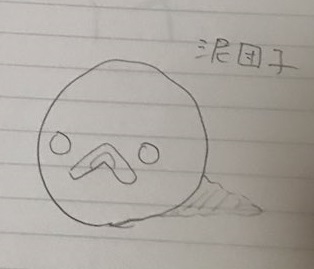 泥団子